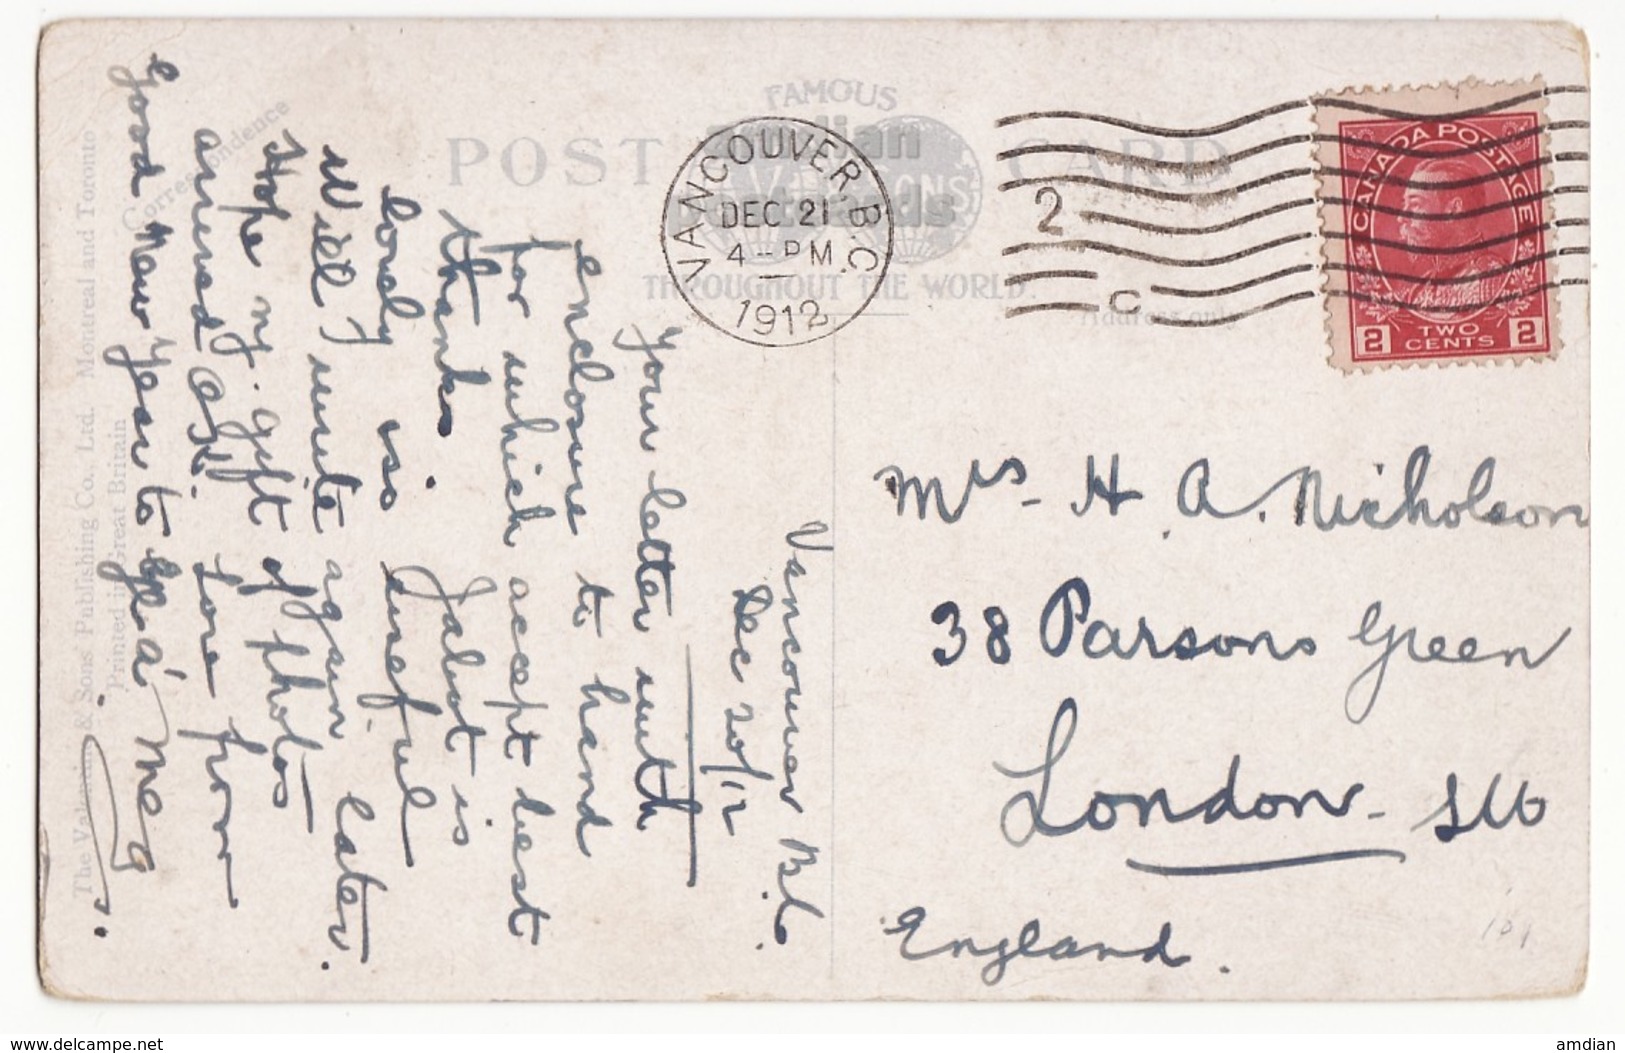 POST CARD
FAMOUS
THROUGHOUT THE WORLD.
amdian
postcards
Correspondence
Address only
VANCOUVER, B.C.
DEC 21
4 - PM
1912
2
C
CANADA POSTAGE
2 TWO CENTS 2
Vancouver B.C.
Dec 20/12
Your letter with
enclosure to hand
for which accept best
thanks. Jabot is
lovely is useful
Will write again later.
Hope my gift of photos
arrived O.K. Love from
Good New Year to
Meg
Mrs H. A. Nicholson
38 Parsons Green
London SW
England.
101
The Valentine & Sons Publishing Co., Ltd. Montreal and Toronto
Printed in Great Britain
www.delcampe.net
amdian